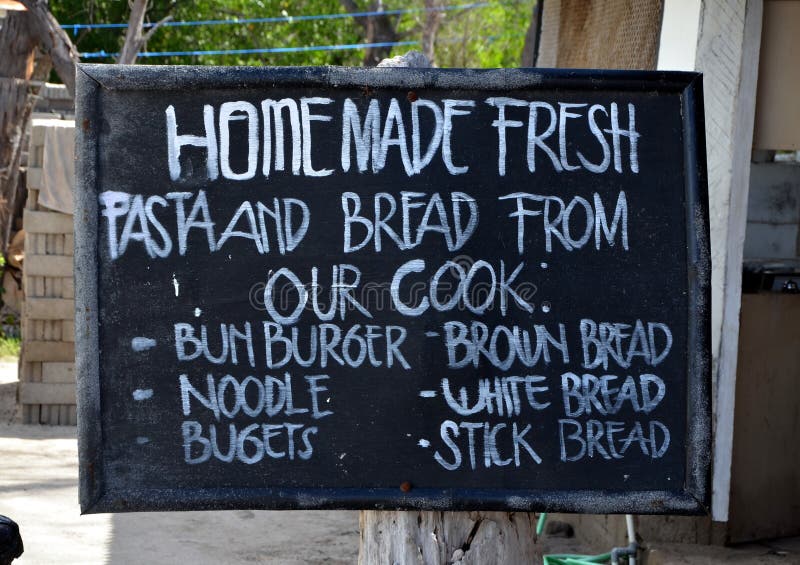 HOMEMADE FRESH
PASTA AND BREAD FROM
OUR COOK:
- BUN BURGER
- NOODLE
- BUGETS
- BROWN BREAD
- WHITE BREAD
- STICK BREAD